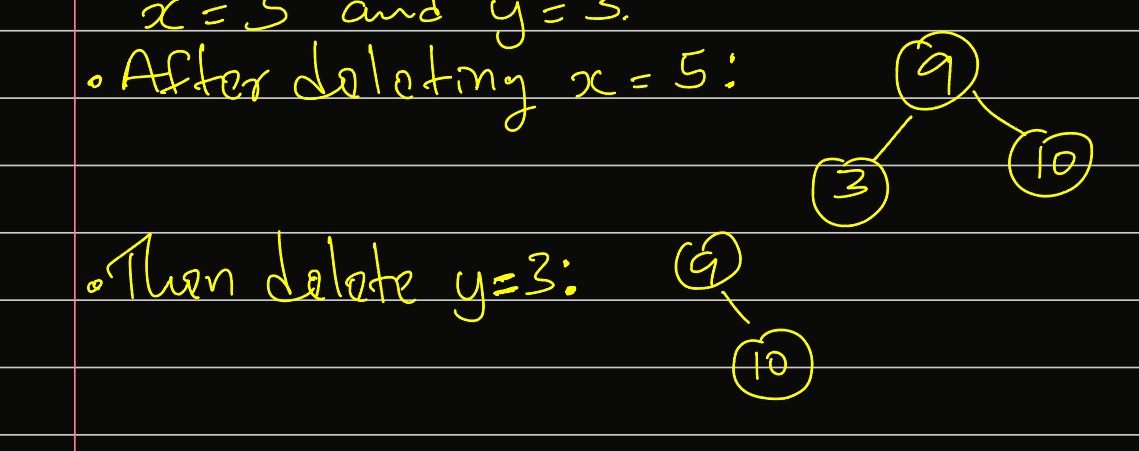 x = 5 and y = 3.
• After deleting x = 5:
9
3
10
• Then delete y=3:
9
10